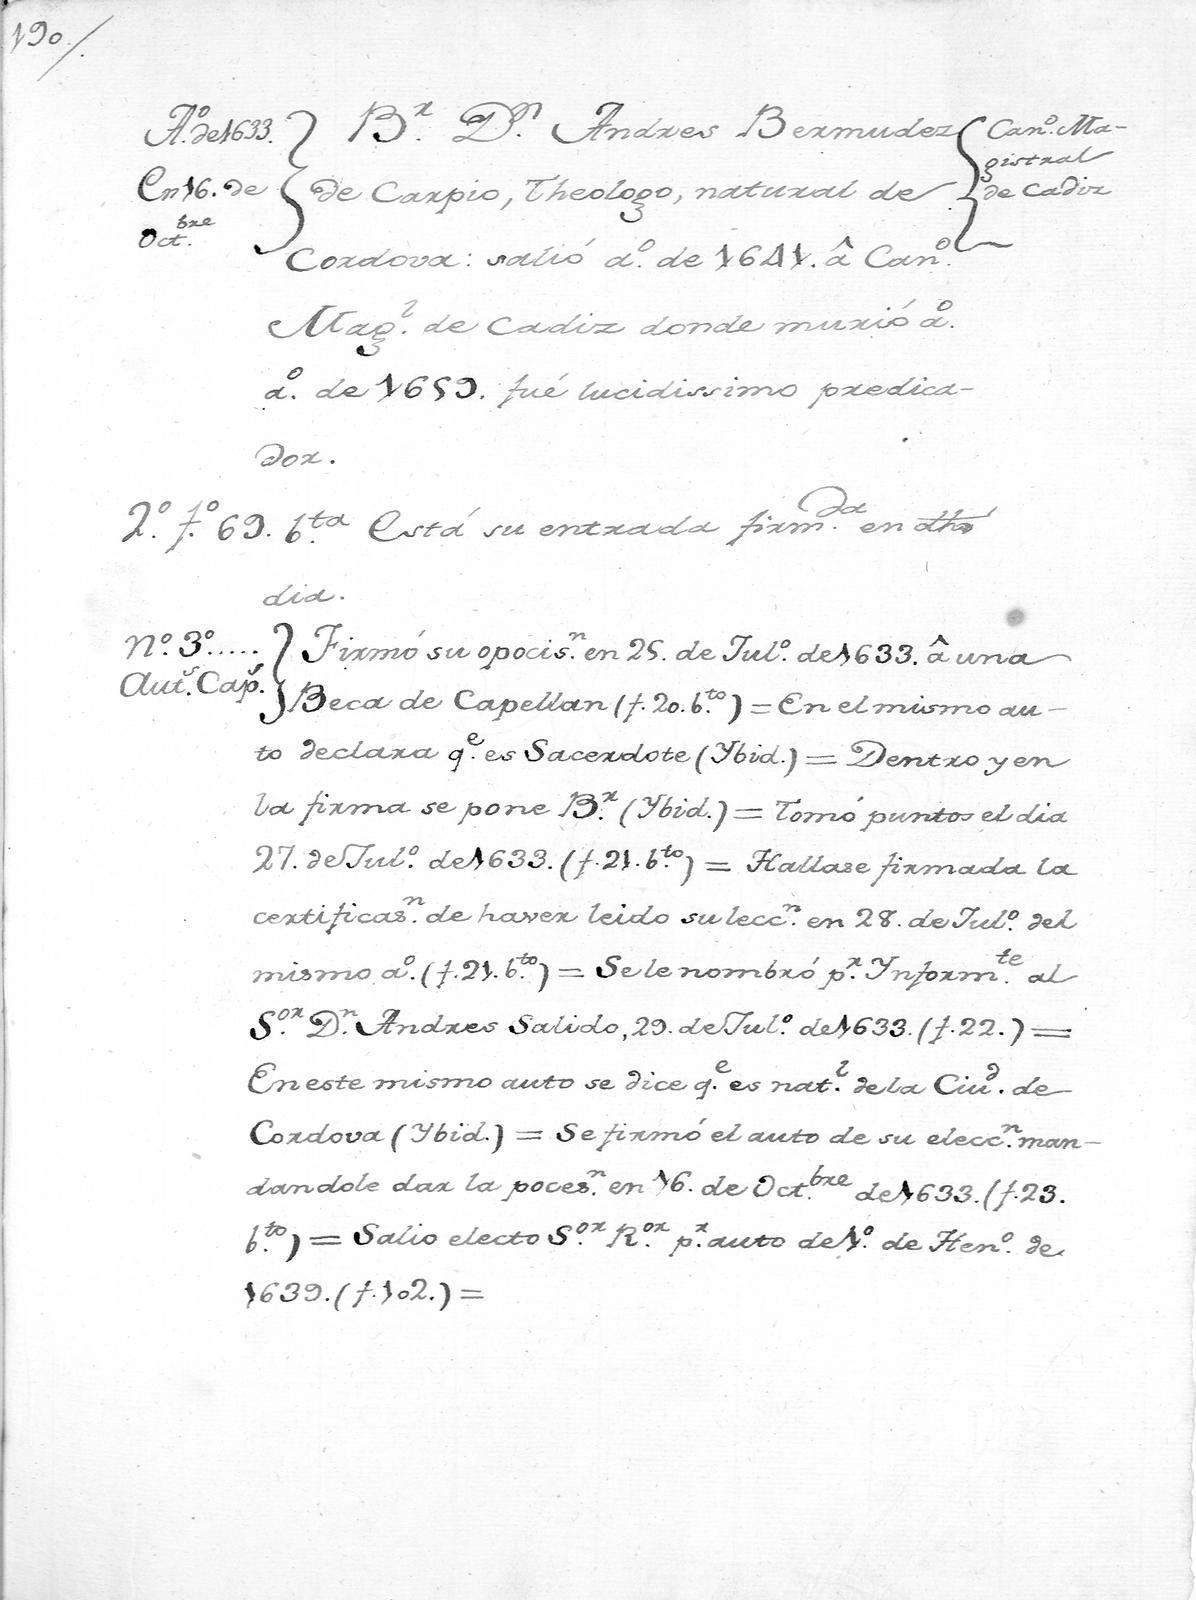 190/.
Aº. de 1633.
En 16. de
Octbre.
Br. Dn. Andres Bermudez
de Carpio, Theologo, natural de
Canº. Ma-
gistral
de Cadiz
Cordova: salió aº. de 1641. â Canº.
Magl. de Cadiz donde murió aº.
aº. de 1659. fué lucidissimo predica-
dor.
2º. fº. 69. bta. Está su entrada firmda. en dho
dia.
Nº. 3º.....
Auts. Caps.
Firmó su opocisn. en 25. de Julº. de 1633. â una
Beca de Capellan (f. 20. bto.) = En el mismo au-
to declara qe. es Sacerdote (Ybid.) = Dentro y en
la firma se pone Br. (Ybid.) = Tomó puntos el dia
27. de Julº. de 1633. (f. 21. bto.) = Hallase firmada la
certificasn. de haver leido su leccn. en 28. de Julº. del
mismo aº. (f. 21. bto.) = Se le nombró pr. Ynformte. al
Sor. Dn. Andres Salido, 29. de Julº. de 1633. (f. 22.) =
En este mismo auto se dice qe. es natl. de la Ciud. de
Cordova (Ybid.) = Se firmó el auto de su eleccn. man-
dandole dar la posesn. en 16. de Octbre. de 1633. (f. 23.
bto.) = Salio electo Sor. Ror. pr. auto de 1º. de Henº. de
1639. (f. 102.) =